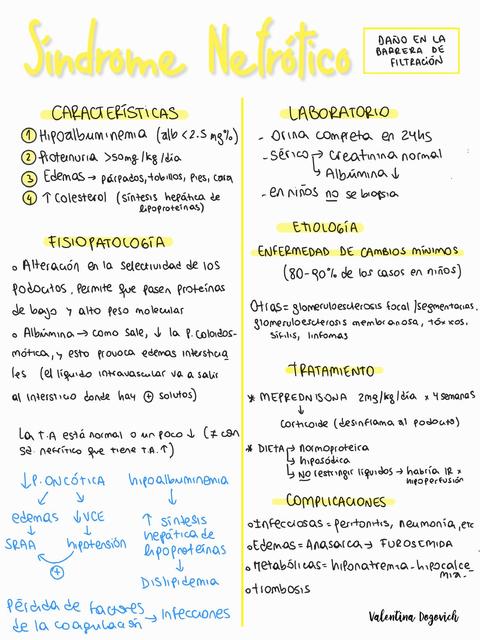 Síndrome Nefrótico
DAÑO EN LA
BARRERA DE
FILTRACIÓN
CARACTERÍSTICAS
① Hipoalbuminemia (alb < 2.5 mg%)
② Proteinuria >50mg/kg/día
③ Edemas → párpados, tobillos, pies, cara
④ ↑ Colesterol (síntesis hepática de
lipoproteínas)
FISIOPATOLOGÍA
o Alteración en la selectividad de los
podocitos, permite que pasen proteínas
de bajo y alto peso molecular
o Albúmina → como sale, ↓ la P. coloidos-
mótica, y esto provoca edemas intersticia
les (el líquido intravascular va a salir
al intersticio donde hay ⊕ solutos)
La T.A está normal o un poco ↓ (≠ con
sd. nefrítico que tiene T.A.↑)
↓P. ONCÓTICA
edemas ↓VCE
SRAA hipotensión
⊕
hipoalbuminemia
↓
↑ síntesis
hepática de
lipoproteínas
↓
DISLIPIDEMIA
Pérdida de factores
de la coagulación → Infecciones
LABORATORIO
- Orina completa en 24hs
- Sérico → Creatinina normal
→ Albúmina ↓
- en niños no se biopsia
ETIOLOGÍA
ENFERMEDAD DE CAMBIOS MÍNIMOS
(80-90% de los casos en niños)
Otras = glomeruloesclerosis focal/segmentarias,
glomeruloesclerosis membranosa, tóxicos,
sífilis, linfomas
TRATAMIENTO
* MEPREDNISONA 2mg/kg/día x 4 semanas
↓
corticoide (desinflama al podocito)
* DIETA → normoproteica
→ hiposódica
→ NO restringir líquidos → habría IR x
hipoperfusión
COMPLICACIONES
o Infecciosas = peritonitis, neumonía, etc
o Edemas = Anasarca → FUROSEMIDA
o Metabólicas = hiponatremia - hipocalce
mia.
o trombosis
Valentina Dogovich